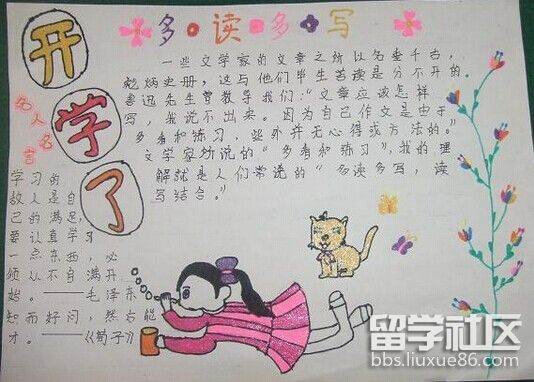 开
学
了
多·读·多·写
名人名言
一些文学家的文章之所以名垂千古,
彪炳史册,这与他们毕生苦读是分不开的。
鲁迅先生曾教导我们:“文章应该怎样
写,我说不出来。因为自己作文是由于
多看和练习,此外并无心得或方法的。”
文学家所说的“多看和练习”,我的理
解就是人们常说的“多读多写,读
写结合。”
学习的
敌人是自
己的满足,
要认真学习
一点东西,必
须以不自满开
始。——毛泽东
知而好问,然后能
才。——《荀子》
留学社区
bbs.liuxue86.com